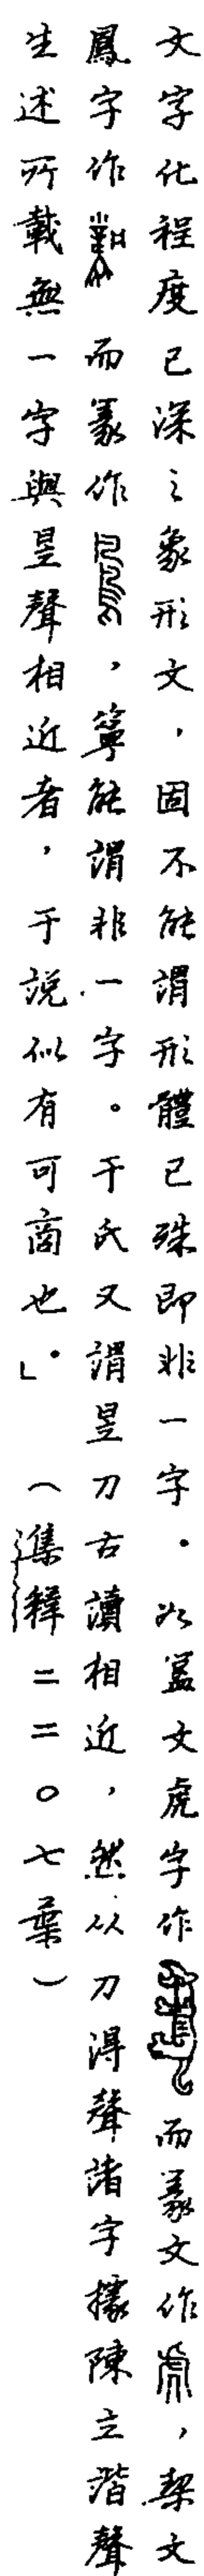 文字化程度已深之象形文，固不能謂形體已殊即非一字。如盂文虎字作而篆文作，契文
鳳字作而篆作，寧能謂非一字。于氏又謂昱刀古讀相近，然以刀得聲諸字據陳立諧聲
生述所載無一字與昱聲相近者，于說似有可商也。」（集釋二二〇七葉）